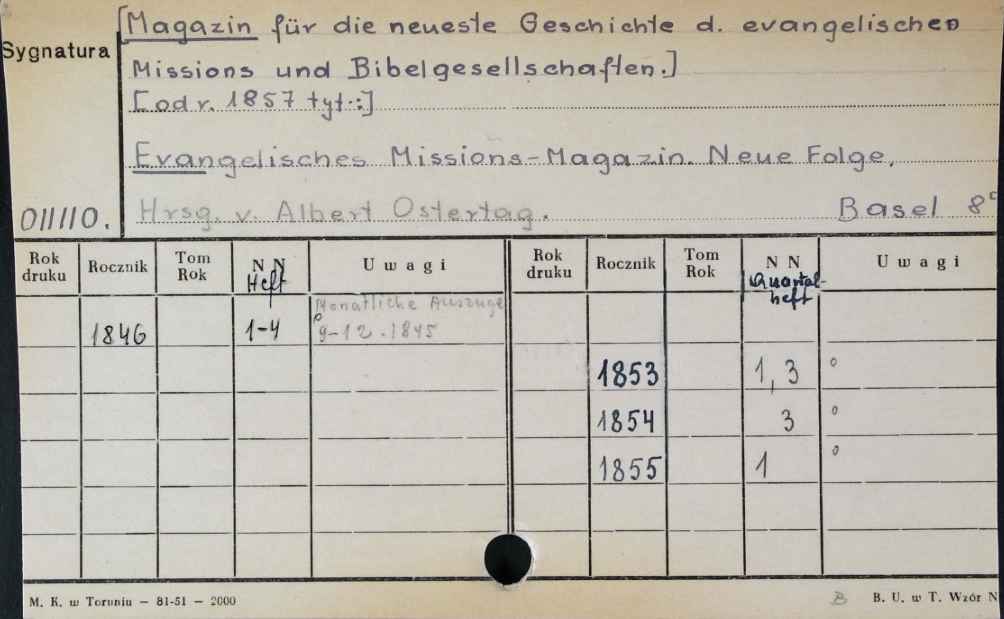 [Magazin für die neueste Geschichte d. evangelischen
Sygnatura
Missions und Bibelgesellschaften.]
[od r. 1857 tyt.:]
Evangelisches Missions-Magazin. Neue Folge.
011110.
Hrsg. v. Albert Ostertag. Basel 8°
Rok druku Rocznik Tom Rok N N Heft Uwagi Rok druku Rocznik Tom Rok N N Quartalheft Uwagi
Monatliche Auszuge
1846 1-4 9-12.1845
1853 1, 3 °
1854 3 °
1855 1 °
M. K. w Toruniu — 81-51 — 2000 B B. U. w T. Wzór N